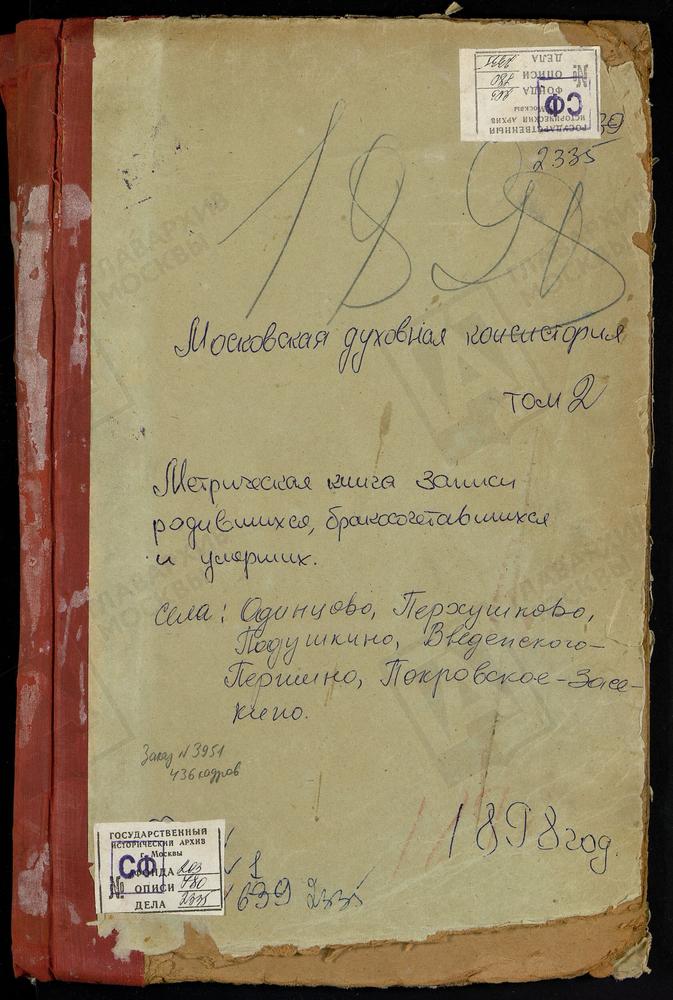 ГОСУДАРСТВЕННЫЙ
ИСТОРИЧЕСКИЙ АРХИВ
г. Москвы
СФ
№
ФОНДА 203
ОПИСИ 780
ДЕЛА 2335
39
2335
1898
Московская духовная консистория
том 2
Метрическая книга записи
родившихся, бракосочетавшихся
и умерших.
села: Одинцово, Перхушково,
Подушкино, Введенского-
Першино, Покровское-Засе-
кино.
Заказ N 3951
436 кадров
1898 год.
ГОСУДАРСТВЕННЫЙ
ИСТОРИЧЕСКИЙ АРХИВ
г. Москвы
СФ
№
ФОНДА 203
ОПИСИ 780
ДЕЛА 2335
1
639 2335
ГЛАВАРХИВ
МОСКВЫ